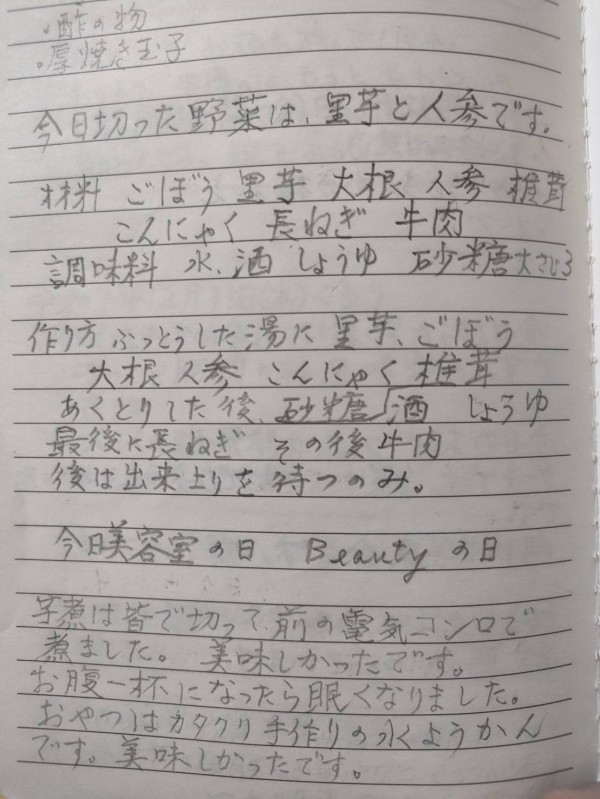 ・酢の物
・厚焼き玉子
今日切った野菜は、里芋と人参です。
材料 ごぼう 里芋 大根 人参 椎茸
こんにゃく 長ねぎ 牛肉
調味料 水、酒 しょうゆ 砂糖大さじ3
作り方 ぶっとうした湯に里芋、ごぼう
大根 人参 こんにゃく 椎茸
あくとりした後、砂糖、酒 しょうゆ
最後に長ねぎ その後牛肉
後は出来上りを待つのみ。
今日美容室の日 Beautyの日
芋煮は皆で切って、前の電気コンロで
煮ました。 美味しかったです。
お腹一杯になったら眠くなりました。
おやつはカタクリ手作りの水ようかん
です。美味しかったです。